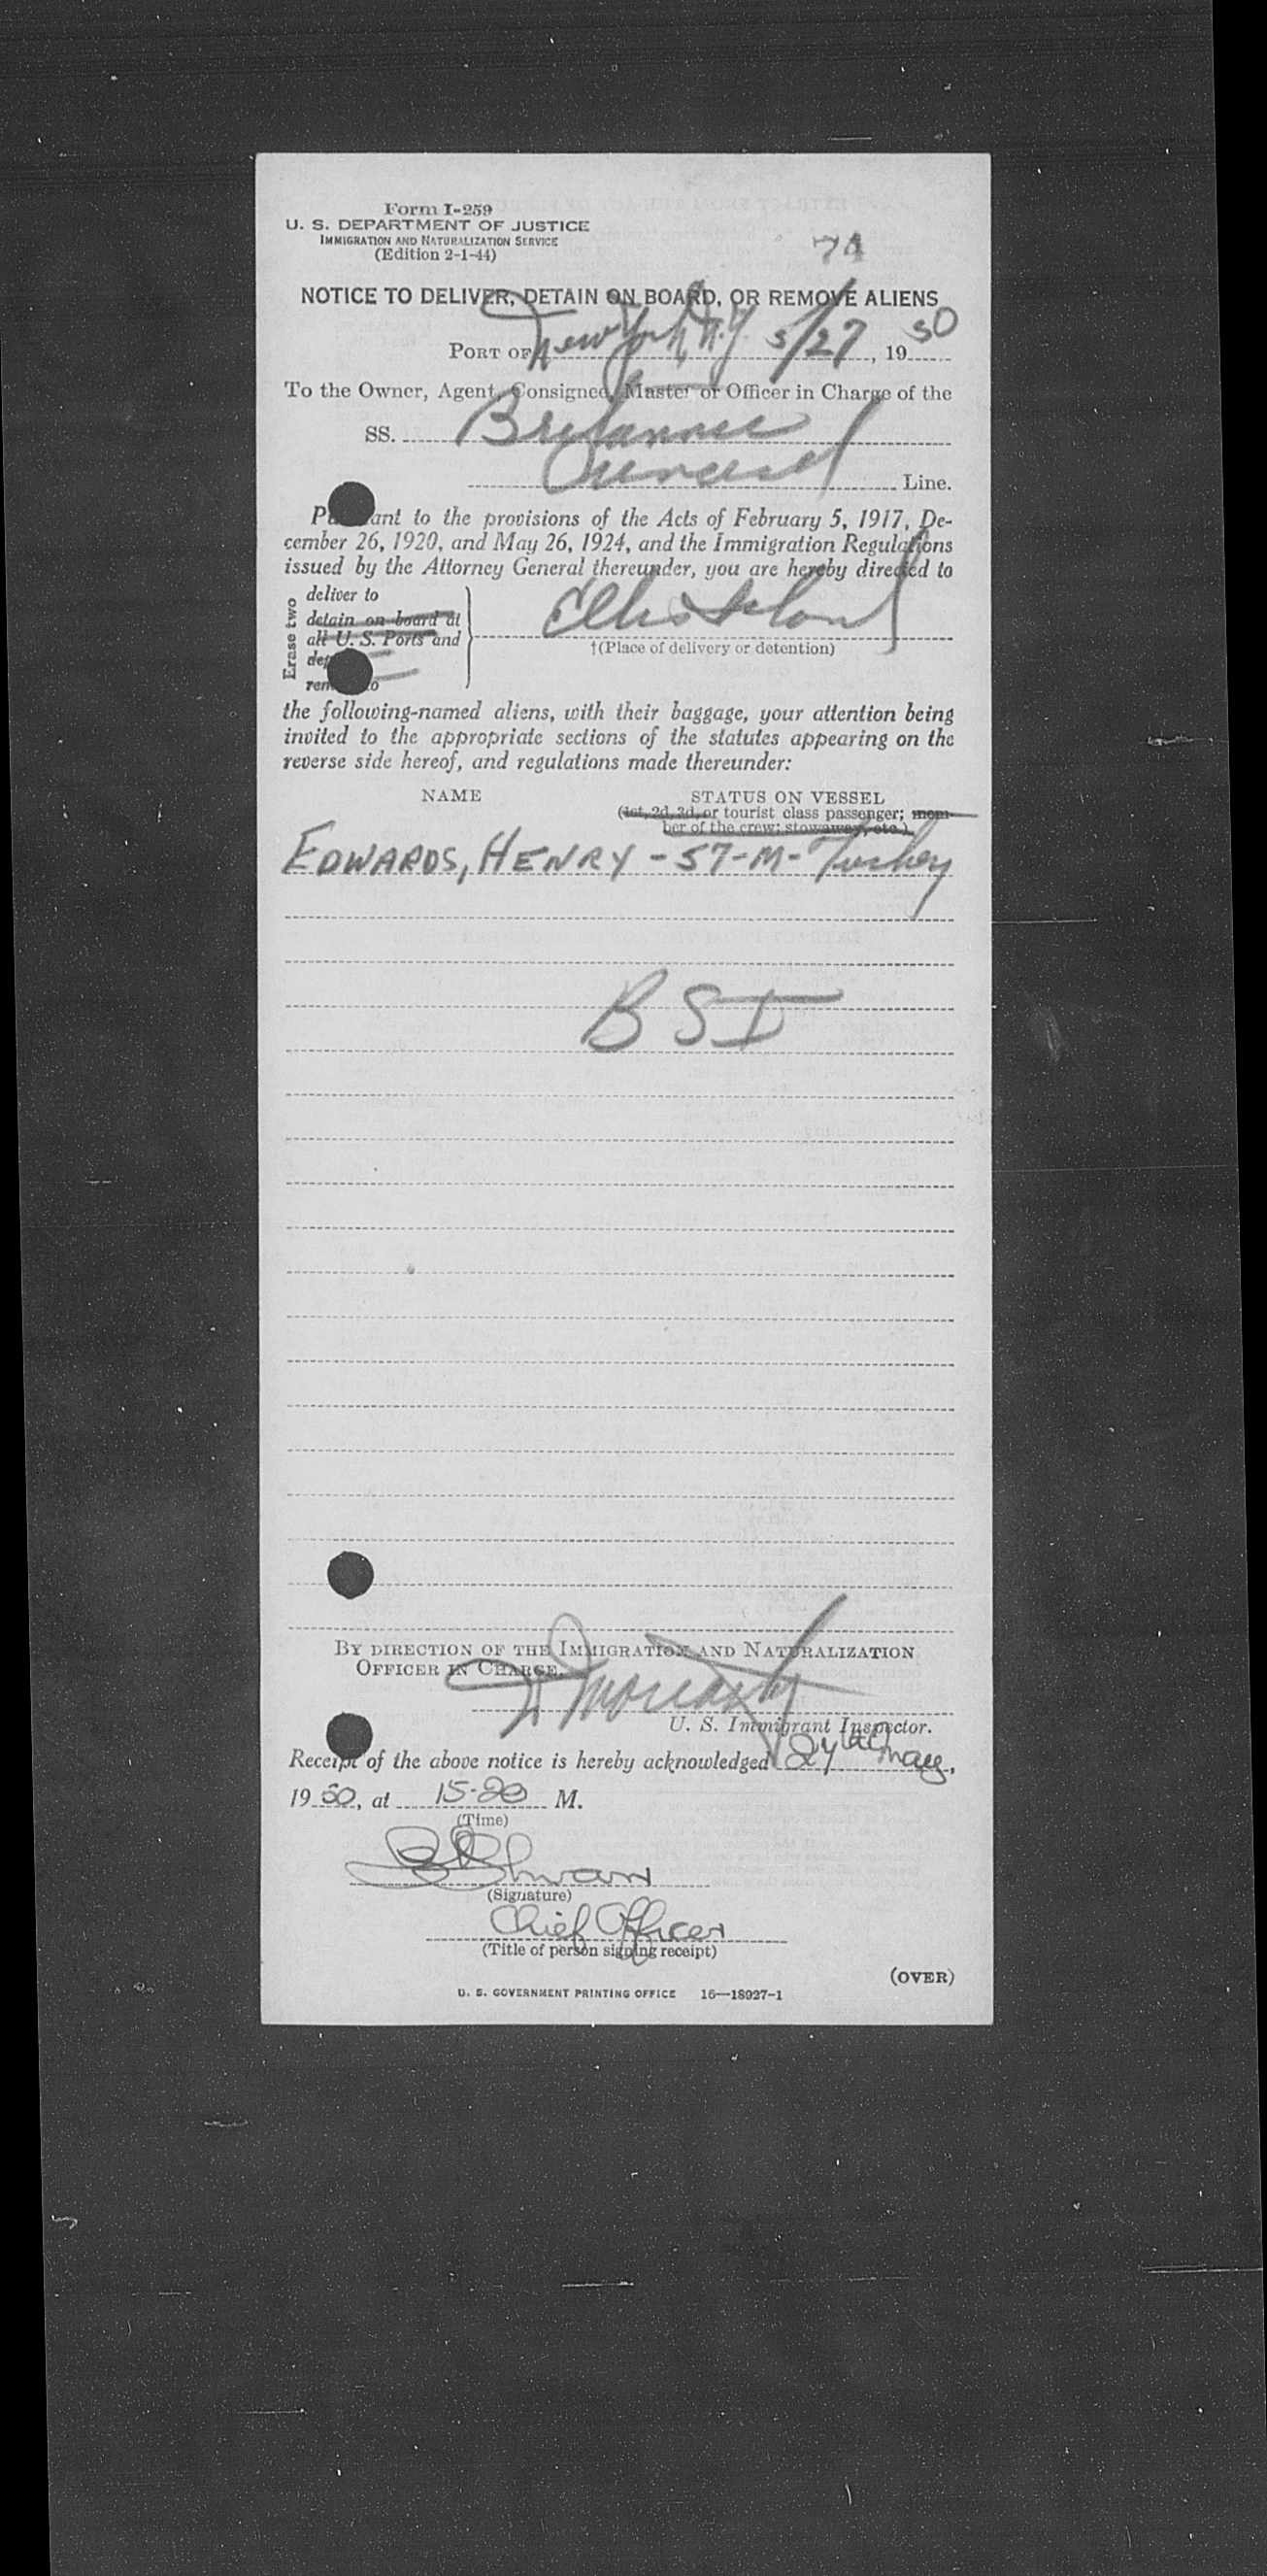 Form I-259
U. S. DEPARTMENT OF JUSTICE
IMMIGRATION AND NATURALIZATION SERVICE
(Edition 2-1-44)
74
NOTICE TO DELIVER, DETAIN ON BOARD, OR REMOVE ALIENS
PORT OF New York N.Y. 5/27, 1950
To the Owner, Agent, Consignee, Master or Officer in Charge of the
SS. Britannic
Cunard Line.
Pursuant to the provisions of the Acts of February 5, 1917, De-
cember 26, 1920, and May 26, 1924, and the Immigration Regulations
issued by the Attorney General thereunder, you are hereby directed to
Erase two
deliver to
detain on board at
all U. S. Ports and
Ellis Island
†(Place of delivery or detention)
the following-named aliens, with their baggage, your attention being
invited to the appropriate sections of the statutes appearing on the
reverse side hereof, and regulations made thereunder:
NAME STATUS ON VESSEL
(1st, 2d, 3d, or tourist class passenger; mem-
ber of the crew; stowaway, etc.)
EDWARDS, HENRY - 57 - M - Turkey
BSI
BY DIRECTION OF THE IMMIGRATION AND NATURALIZATION
OFFICER IN CHARGE.
U. S. Immigrant Inspector.
Receipt of the above notice is hereby acknowledged 27th May,
1950, at 15-20 M.
(Time)
(Signature)
Chief Officer
(Title of person signing receipt)
(OVER)
U. S. GOVERNMENT PRINTING OFFICE 16—18927-1